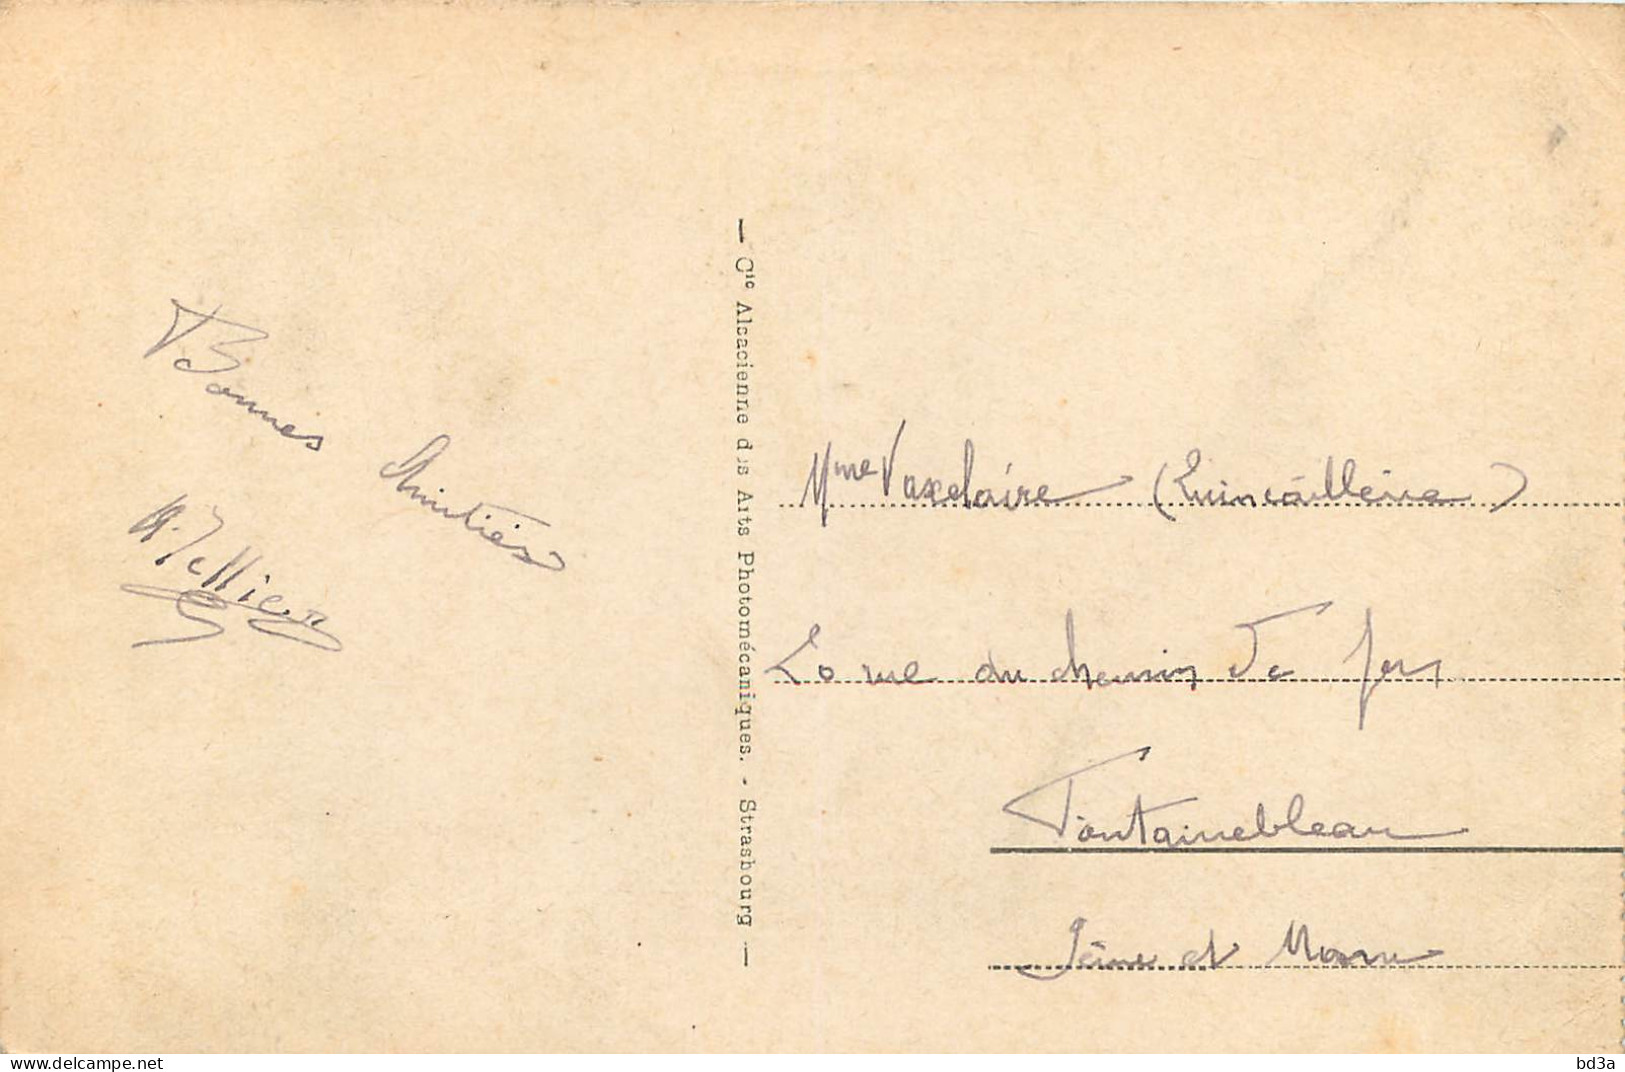 Bonnes
Amitiés
A. Tellier
— Cie Alsacienne des Arts Photomécaniques. - Strasbourg —
Mme Vaxelaire (Quincaillerie)
rue du chemin de fer
Fontainebleau
Seine et Marne
delcampe.net
bd3a